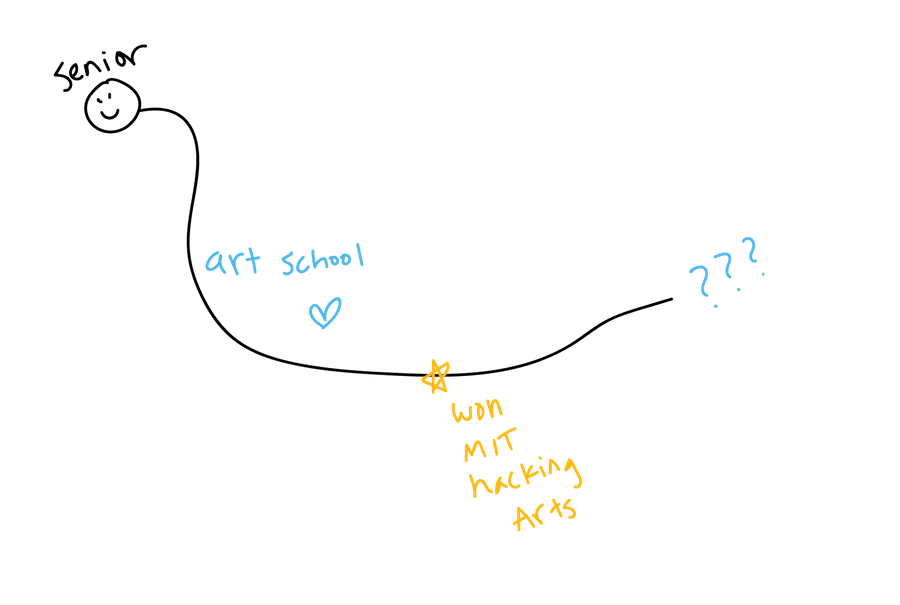 senior
art school
???
won
MIT
hacking
Arts